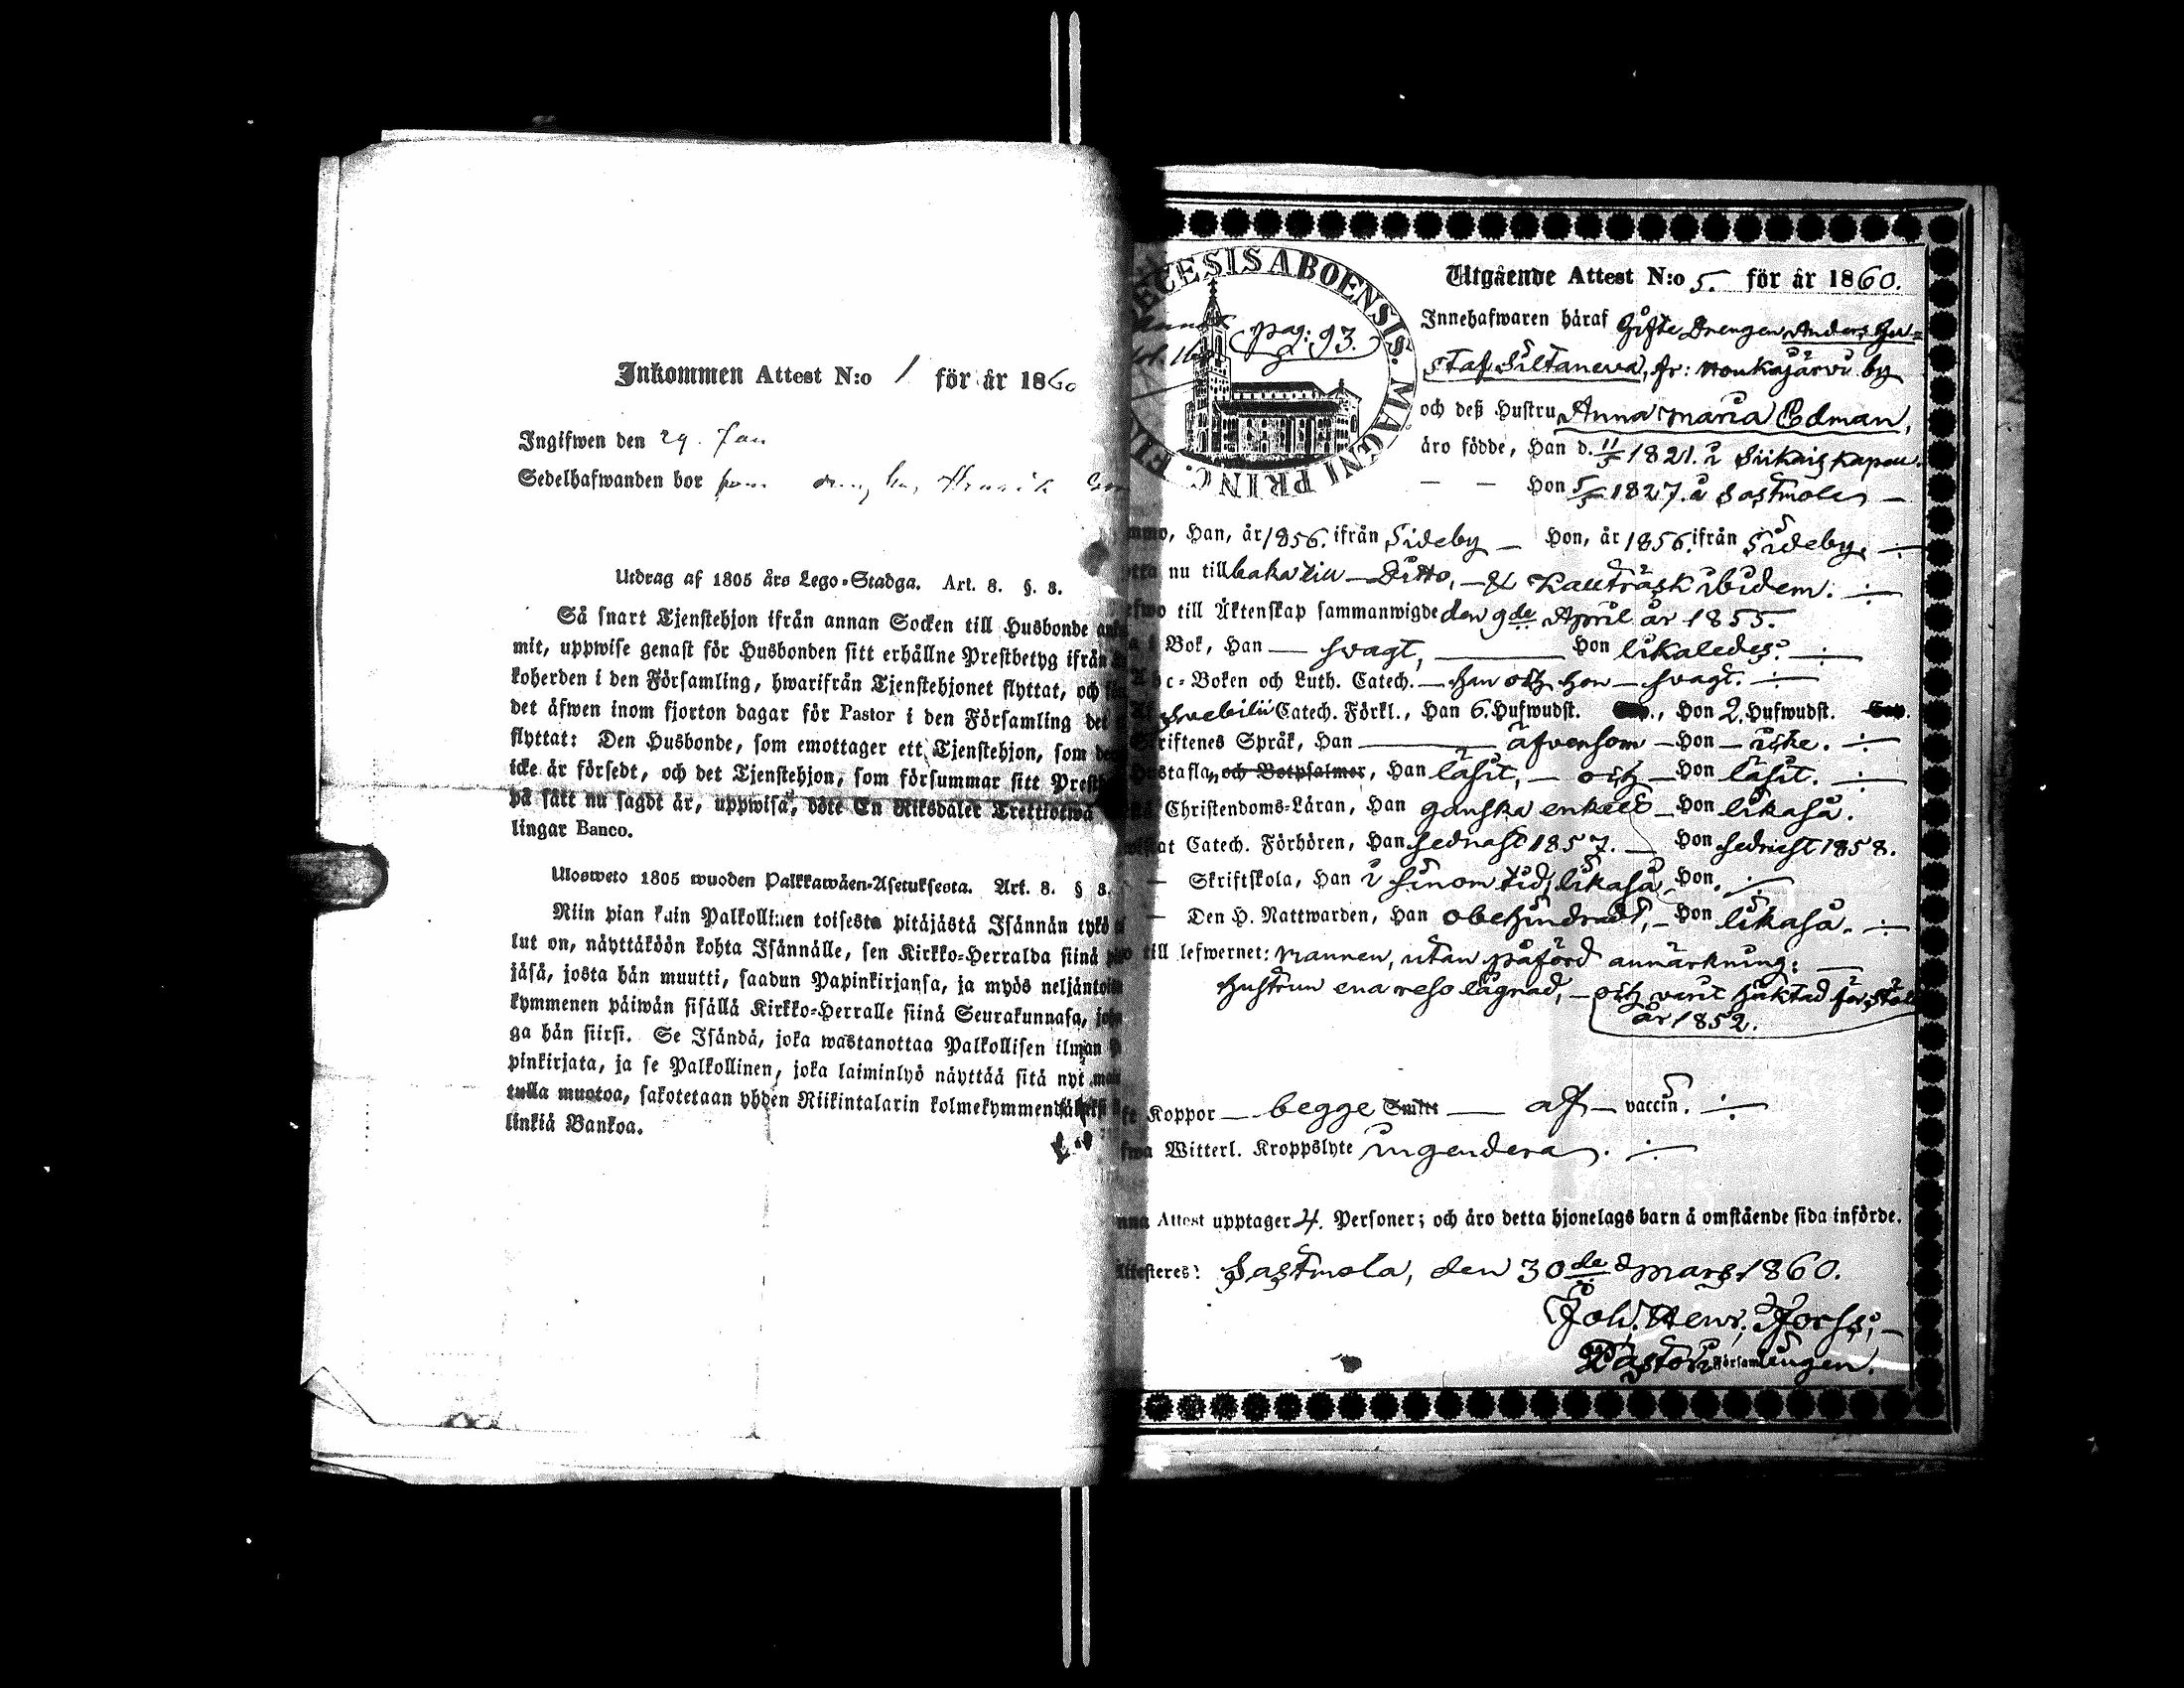 Inkommen Attest N:o 1 för år 1860
Ingifwen den 29. Jan
Sedelhafwanden bor Henrik
Utdrag af 1805 års Lego-Stadga. Art. 8. §. 8.
Så snart Tjenstehjon ifrån annan Socken till Husbonde
mit, uppwise genast för Husbonden sitt erhållne Prestbetyg ifrån
koherden i den Församling, hwarifrån Tjenstehjonet flyttat, och
det äfwen inom fjorton dagar för Pastor i den Församling det
flyttat: Den Husbonde, som emottager ett Tjenstehjon, som
icke är försedt, och det Tjenstehjon, som försummar sitt
på sätt nu sagdt är, uppwisa, böte En Riksdaler Trettiotwå
lingar Banco.
Ulosweto 1805 wuoden Palkkawäen-Asetuksesta. Art. 8. § 8.
Niin pian kuin Palkollinen toisesta pitäjästä Isännän tykö
lut on, näyttäköön kohta Isännälle, sen Kirkko-Herralda siinä
jäsä, josta hän muutti, saadun Papinkirjansa, ja myös neljäntoista
kymmenen päiwän sisällä Kirkko-Herralle siinä Seurakunnasa,
ga hän siirsi. Se Isändä, joka wastanottaa Palkollisen ilman
pinkirjata, ja se Palkollinen, joka laiminlyö näyttää sitä nyt
tulla muotoa, sakotetaan yhden Riikintalarin kolmekymmentä
linkiä Bankoa.
ECESIS ABOENSIS. MAGNI PRINC. FI
pag: 93.
Utgående Attest N:o 5. för år 1860.
Innehafwaren häraf Gifte Drengen Anders Gu-
staf Siltaneva, fr: Honkajärvi by
och deß Hustru Anna Maria Edman,
äro födde, Han d. 11/5 1821. i Siikais kapell.
— — Hon 5/5 1827. i Sastmola —
Han, år 1856. ifrån Sideby — Hon, år 1856. ifrån Sideby.
nu till baka till — Ditto, — Kallträsk ibidem.
till Äktenskap sammanwigde den 9de April år 1855.
i Bok, Han — svagt, — Hon likaledes.
Abc-Boken och Luth. Catech. — han och hon — svagt.
Svebilii Catech. Förkl., Han 6. Hufwudst. , Hon 2. Hufwudst.
Skriftenes Språk, Han — äfvensom — Hon — icke.
Hustafla, och Botpsalmer, Han läsit, — och — Hon läsit.
Christendoms-Läran, Han ganska enkelt — Hon likaså.
Catech. Förhören, Han sednast 1857. — Hon sednast 1858.
— Skriftskola, Han i sinom tid, likaså Hon.
— Den H. Nattwarden, Han obehindradt, — Hon likaså.
till lefwernet: Mannen, utan påförd anmärkning;
Hustrun ena reso lägrad, — och varit häktad för stöld
år 1852.
Koppor — begge — af — vaccin.
Witterl. Kroppslyte ingendera.
Attest upptager 4. Personer; och äro detta hjonelags barn å omstående sida införde.
Attesteres: Sastmola, den 30de Mars 1860.
Joh. Henr. Forss,
Pastor i Församlingen.